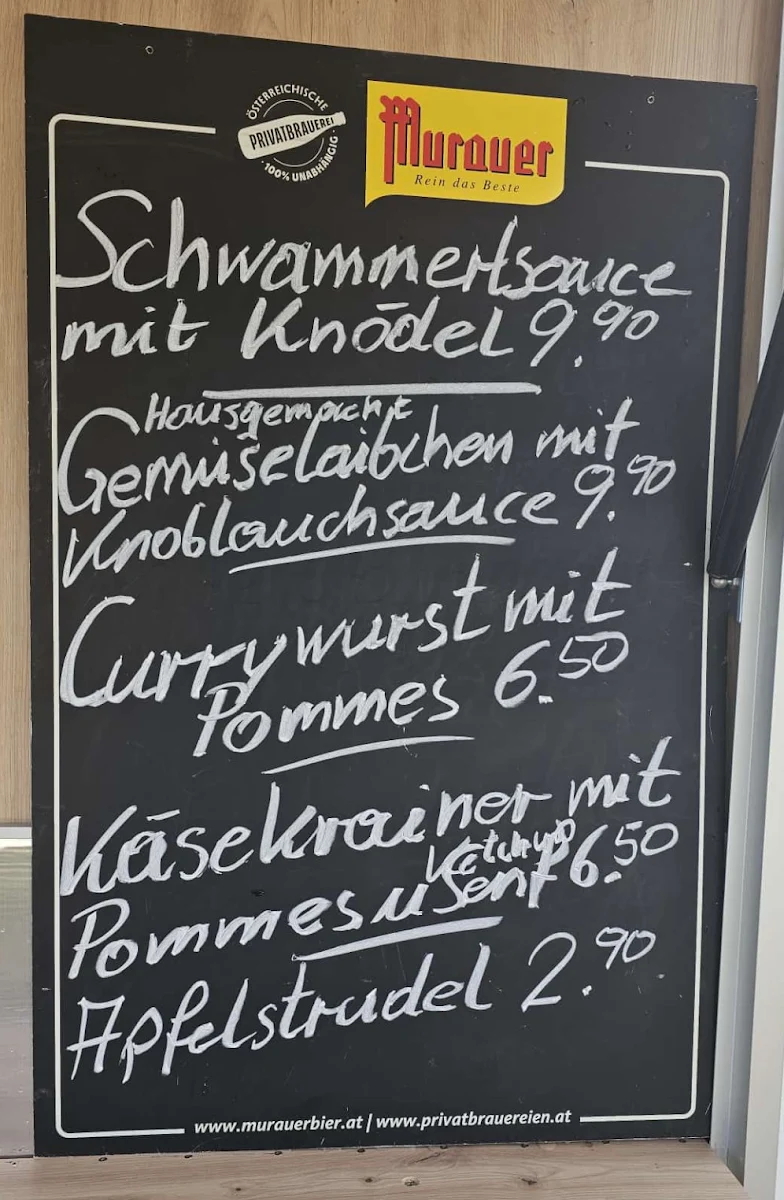 ÖSTERREICHISCHE
PRIVATBRAUEREI
· 100% UNABHÄNGIG ·
Murauer
Rein das Beste
Schwammerlsauce
mit Knödel 9.90
Hausgemacht
Gemüselaibchen mit
Knoblauchsauce 9.90
Currywurst mit
Pommes 6.50
Käsekrainer mit
Ketchup
Pommes u Senf 6.50
Apfelstrudel 2.90
www.murauerbier.at | www.privatbrauereien.at